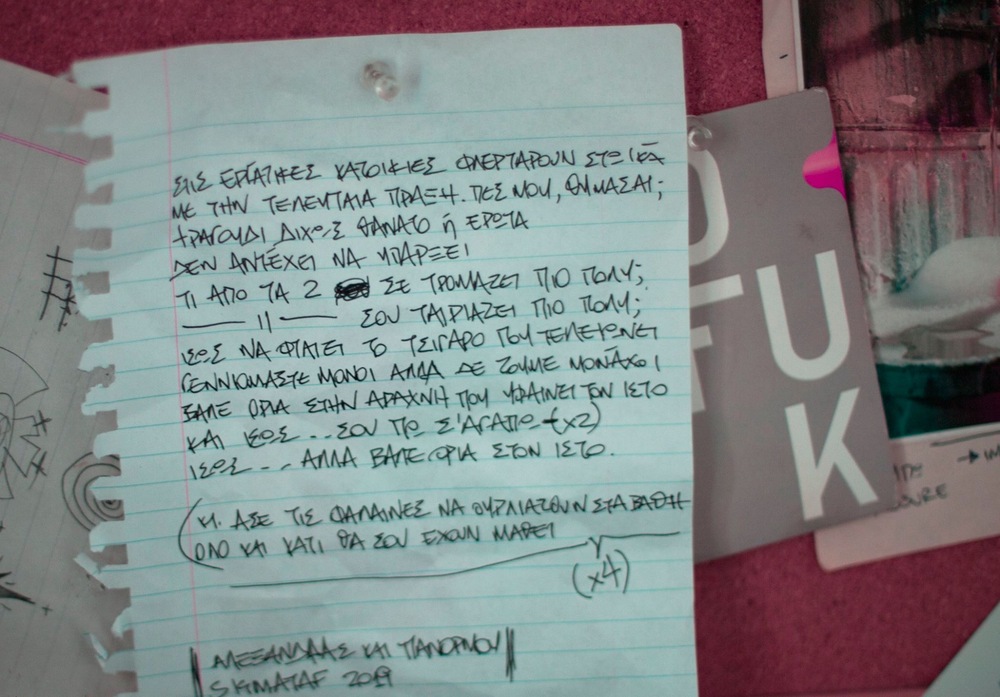 ΣΤΙΣ ΕΡΓΑΤΙΚΕΣ ΚΑΤΟΙΚΙΕΣ ΦΛΕΡΤΑΡΟΥΝ ΣΤΟΙΧΕΙΑ
ΜΕ ΤΗΝ ΤΕΛΕΥΤΑΙΑ ΠΡΑΞΗ. ΠΕΣ ΜΟΥ, ΘΥΜΑΣΑΙ;
ΤΡΑΓΟΥΔΙ ΔΙΧΩΣ ΘΑΝΑΤΟ ή ΕΡΩΤΑ
ΔΕΝ ΑΝΤΕΧΕΙ ΝΑ ΥΠΑΡΞΕΙ
ΤΙ ΑΠΟ ΤΑ 2 ΣΕ ΤΡΟΜΑΖΕΙ ΠΙΟ ΠΟΛΥ;
—— 11 —— ΣΟΥ ΤΑΙΡΙΑΖΕΙ ΠΙΟ ΠΟΛΥ;
ΙΣΩΣ ΝΑ ΦΤΑΙΕΙ ΤΟ ΤΣΙΓΑΡΟ ΠΟΥ ΤΕΛΕΙΩΝΕΙ
ΓΕΝΝΙΟΜΑΣΤΕ ΜΟΝΟΙ ΑΛΛΑ ΔΕ ΖΟΥΜΕ ΜΟΝΑΧΟΙ
ΒΑΛΕ ΟΡΙΑ ΣΤΗΝ ΑΡΑΧΝΗ ΠΟΥ ΥΦΑΙΝΕΙ ΤΟΝ ΙΣΤΟ
ΚΑΙ ΙΣΩΣ... ΣΟΥ ΠΩ Σ'ΑΓΑΠΩ (x2)
ΙΣΩΣ... ΑΛΛΑ ΒΑΛΕ ΟΡΙΑ ΣΤΟΝ ΙΣΤΟ.
Κι ΑΣΕ ΤΙΣ ΦΑΛΑΙΝΕΣ ΝΑ ΟΥΡΛΙΑΖΟΥΝ ΣΤΑ ΒΑΘΗ
ΟΛΟ ΚΑΙ ΚΑΤΙ ΘΑ ΣΟΥ ΕΧΟΥΝ ΜΑΘΕΙ
(x4)
ΑΛΕΞΑΝΔΡΑΣ ΚΑΙ ΠΑΝΟΡΜΟΥ
SKIMATAF 2019
U
F
K